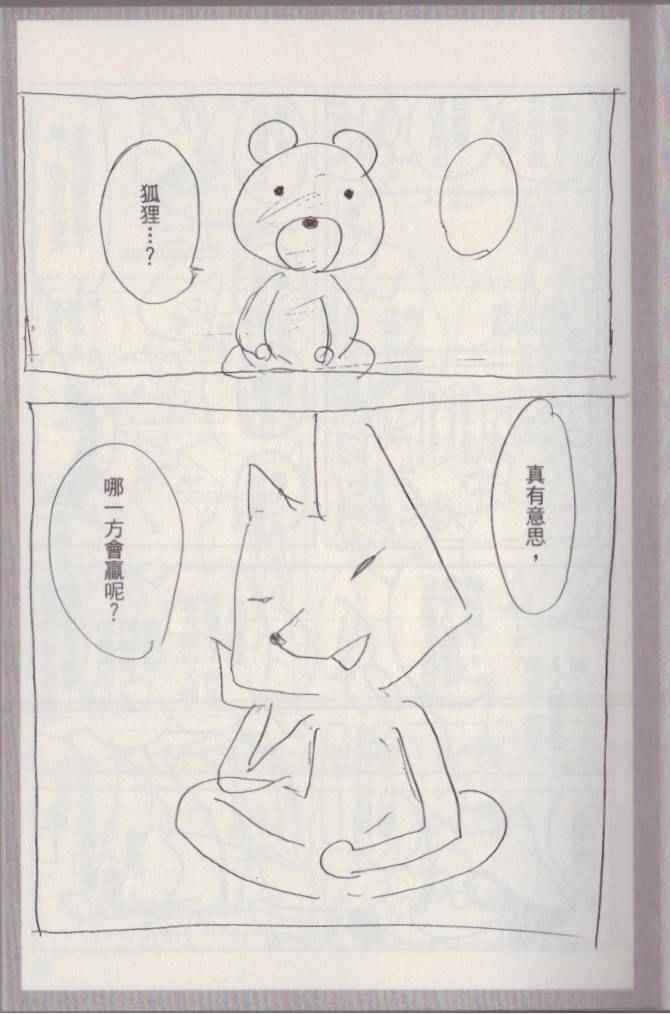 狐狸…?
真有意思，
哪一方會贏呢?